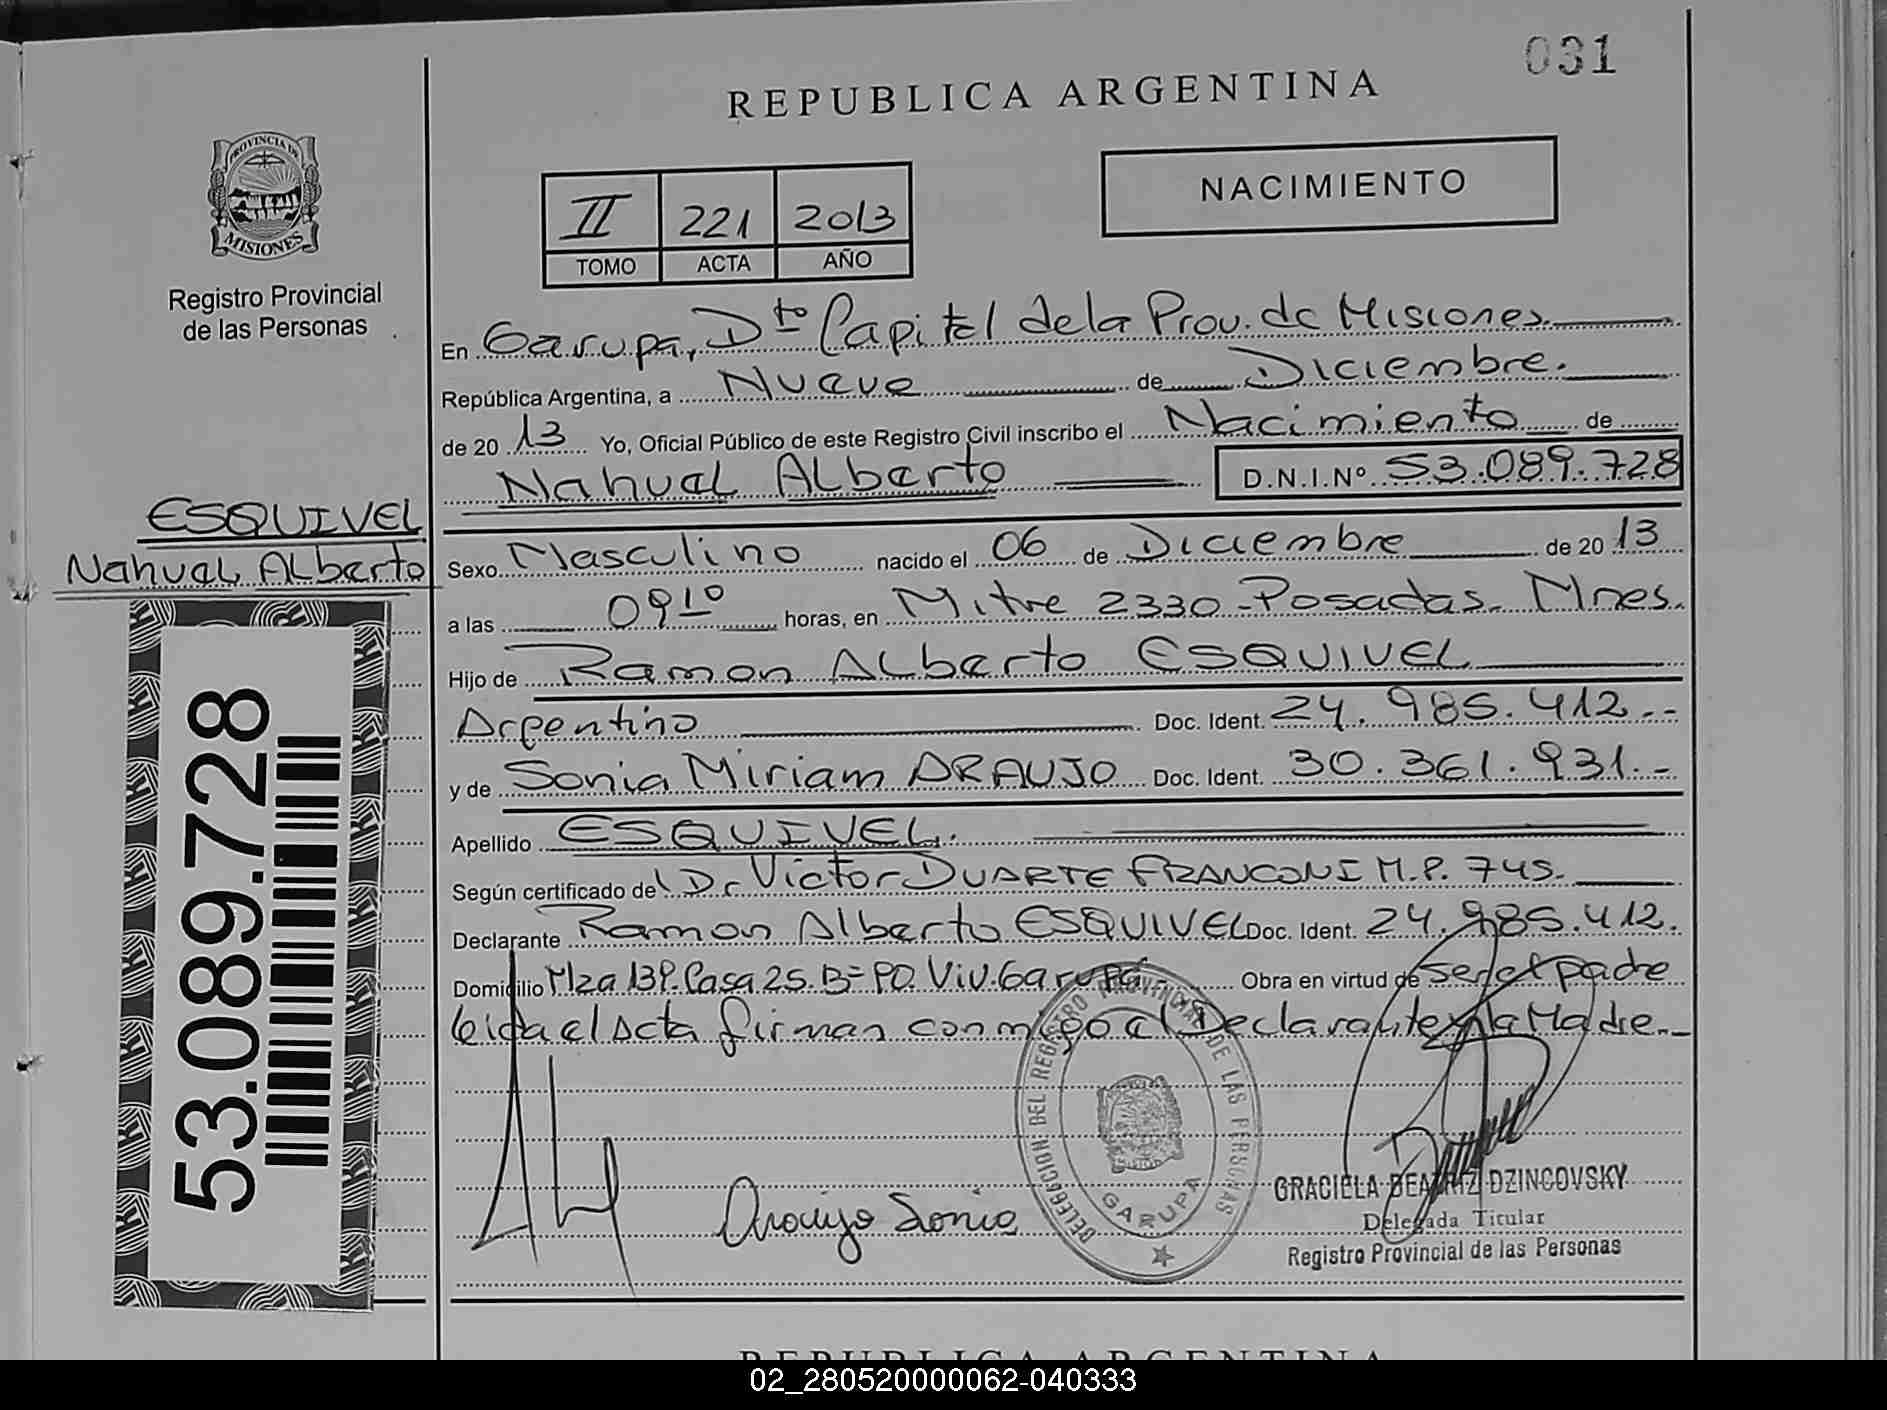 031
REPUBLICA ARGENTINA
PROVINCIA DE
MISIONES
Registro Provincial
de las Personas
NACIMIENTO
II 221 2013
TOMO ACTA AÑO
En Garupa, Dto Capital de la Prov. de Misiones.
República Argentina, a Nueve de Diciembre.
de 20 13 Yo, Oficial Público de este Registro Civil inscribo el Nacimiento de
Nahuel Alberto D.N.I.Nº 53.089.728
ESQUIVEL
Nahuel Alberto
Sexo Masculino nacido el 06 de Diciembre de 20 13
a las 09 10 horas, en Mitre 2330 - Posadas. Mnes.
Hijo de Ramon Alberto ESQUIVEL
Argentino Doc. Ident. 24.985.412.--
y de Sonia Miriam ARAUJO Doc. Ident. 30.361.931.-
Apellido ESQUIVEL.
Según certificado del Dr Victor DUARTE FRANCONI M.P. 745.
Declarante Ramon Alberto ESQUIVEL Doc. Ident. 24.985.412.
Domicilio Mza 13P. Casa 25. Bº PO. Viv. Garupá Obra en virtud de ser el padre
leida el Acta firman conmigo el Declarante y la Madre.-
53.089.728
DELEGACION DEL REGISTRO PROVINCIAL DE LAS PERSONAS
GARUPA
Araujo Sonia
GRACIELA BEATRIZ DZINCOVSKY
Delegada Titular
Registro Provincial de las Personas
REPUBLICA ARGENTINA
02_280520000062-040333